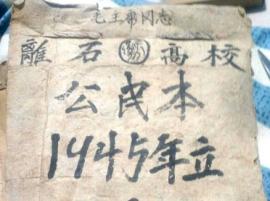 毛主席同志
離石高校
公民本
1945年立